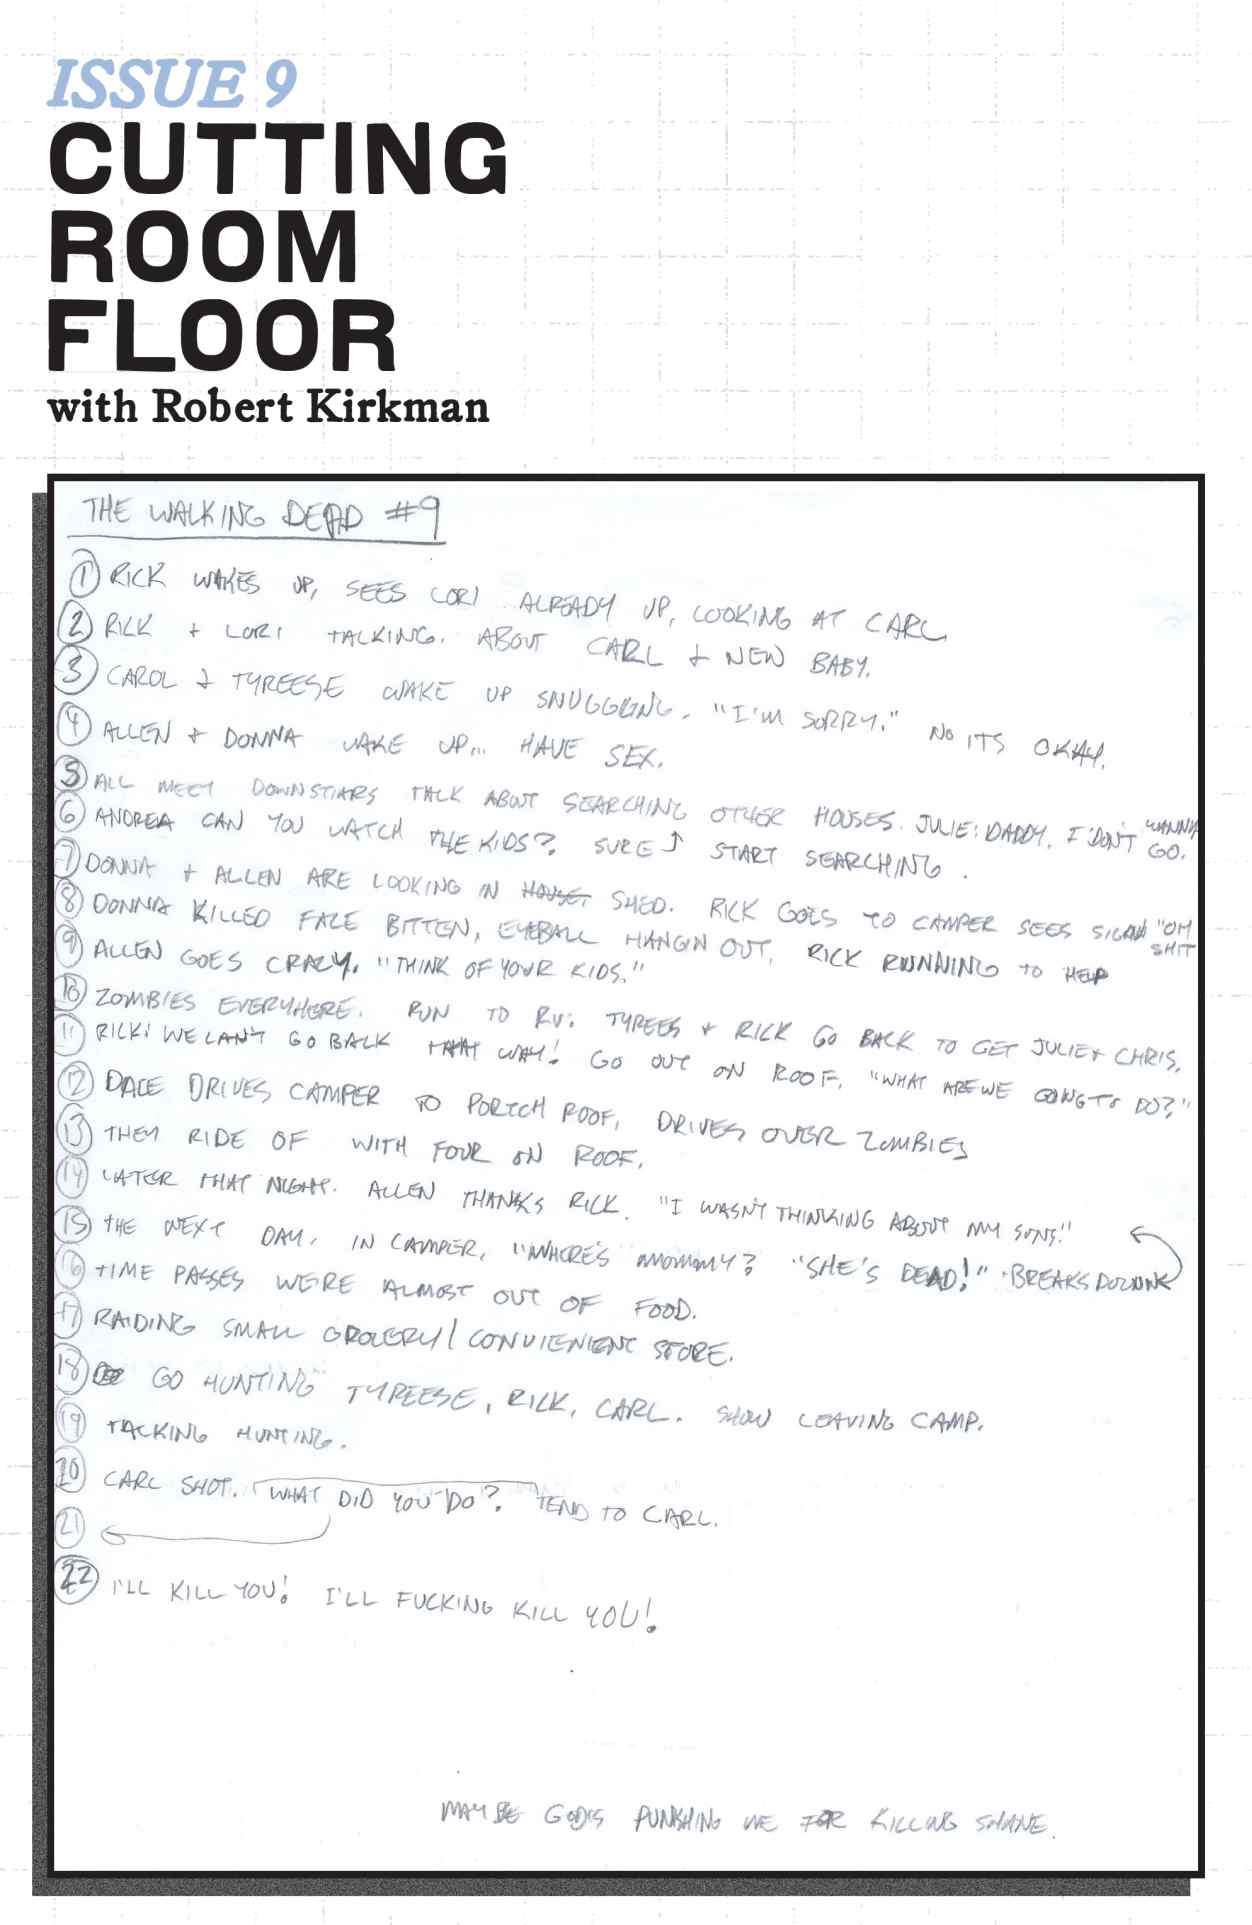 ISSUE 9
CUTTING
ROOM
FLOOR
with Robert Kirkman
THE WALKING DEAD #9
1 RICK WAKES UP, SEES LORI ALREADY UP, LOOKING AT CARL
2 RICK + LORI TALKING. ABOUT CARL + NEW BABY.
3 CAROL & TYREESE WAKE UP SNUGGGING. "I'M SORRY." NO ITS OKAY.
4 ALLEN + DONNA WAKE UP... HAVE SEX.
5 ALL MEET DOWNSTIARS TALK ABOUT SEARCHING OTHER HOUSES. JULIE: DADDY, I DON'T WANNA GO.
6 ANDREA CAN YOU WATCH THE KIDS? SURE START SEARCHING.
7 DONNA + ALLEN ARE LOOKING IN HOUSE, SHED. RICK GOES TO CAMPER SEES SIGN "OH SHIT
8 DONNA KILLED FACE BITTEN, EYEBALL HANGIN OUT. RICK RUNNING TO HELP
9 ALLEN GOES CRAZY. "THINK OF YOUR KIDS."
10 ZOMBIES EVERYWHERE. RUN TO RV. TYREES + RICK GO BACK TO GET JULIE + CHRIS.
11 RICK: WE CAN'T GO BACK THAT WAY! GO OUT ON ROOF. "WHAT ARE WE GOING TO DO?"
12 DALE DRIVES CAMPER TO PORTCH ROOF, DRIVES OVER ZOMBIES
13 THEY RIDE OF WITH FOUR ON ROOF.
14 LATER THAT NIGHT. ALLEN THANKS RICK. "I WASN'T THINKING ABOUT MY SONS."
15 THE NEXT DAY, IN CAMPER, "WHERE'S MOMMY? "SHE'S DEAD!" BREAKS DOWN
16 TIME PASSES WE'RE ALMOST OUT OF FOOD.
17 RAIDING SMALL GROCERY/CONVIENIENT STORE.
18 GO HUNTING TYREESE, RICK, CARL. SHOW LEAVING CAMP.
19 TALKING HUNTING.
20 CARL SHOT. WHAT DID YOU DO? TEND TO CARL.
21
22 I'LL KILL YOU! I'LL FUCKING KILL YOU!
MAYBE GOD IS PUNISHING ME FOR KILLING SHANE.